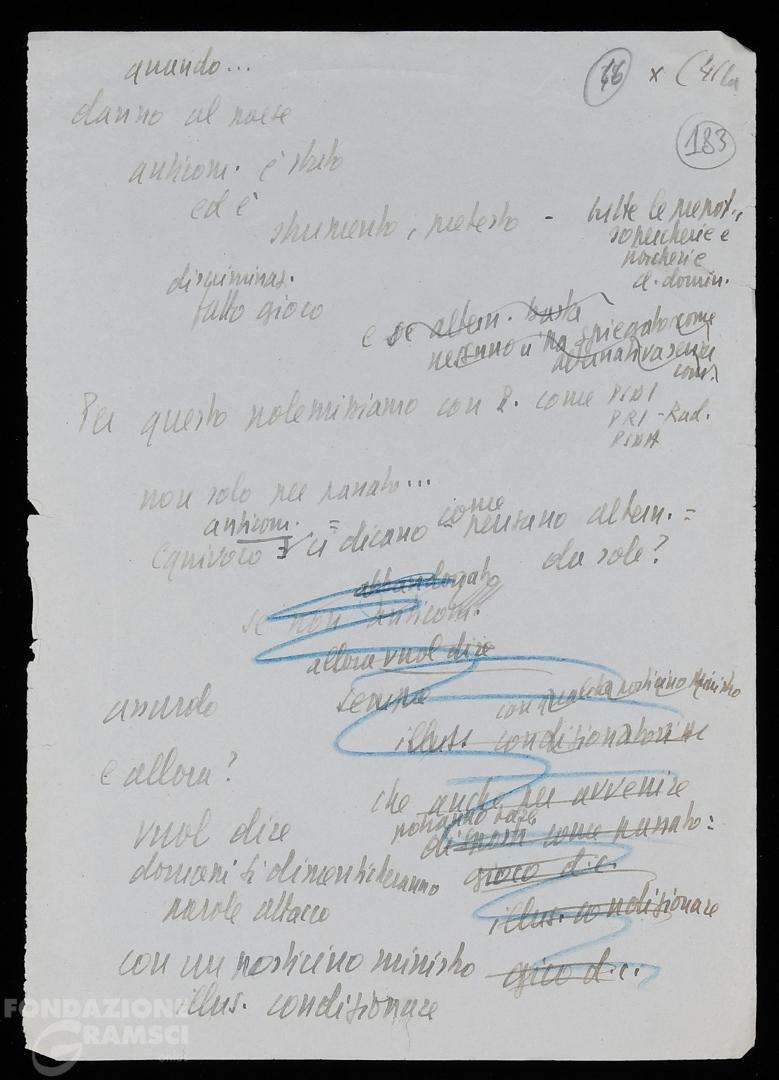 quando...
46 x (41/a
183
danno al paese
anticom. è stato
ed è
strumento, pretesto - tutte le prepot.,
sopercherie e
porcherie
d. domin.
discriminaz.
fatto gioco
e se altern. basta
nessuno ci ha spiegato come
alternativa senza
com.
Per questo polemizziamo con P. come PSDI
PRI - Rad.
PSDA
non solo per passato...
anticom. =
equivoco ci dicano come pensano altern. =
da sole?
abbandonato
se non anticom.
allora vuol dire
assurdo
sempre
con qualche posticino ministro
illus. condizionatori
e allora?
che anche per avvenire
potranno
vuol dire
come passato:
domani si dimenticheranno
gioco d.c.
parole attacco
illus. condizionare
con un posticino ministro
gioco d.c.
illus. condizionare
FONDAZIONE
GRAMSCI
onlus